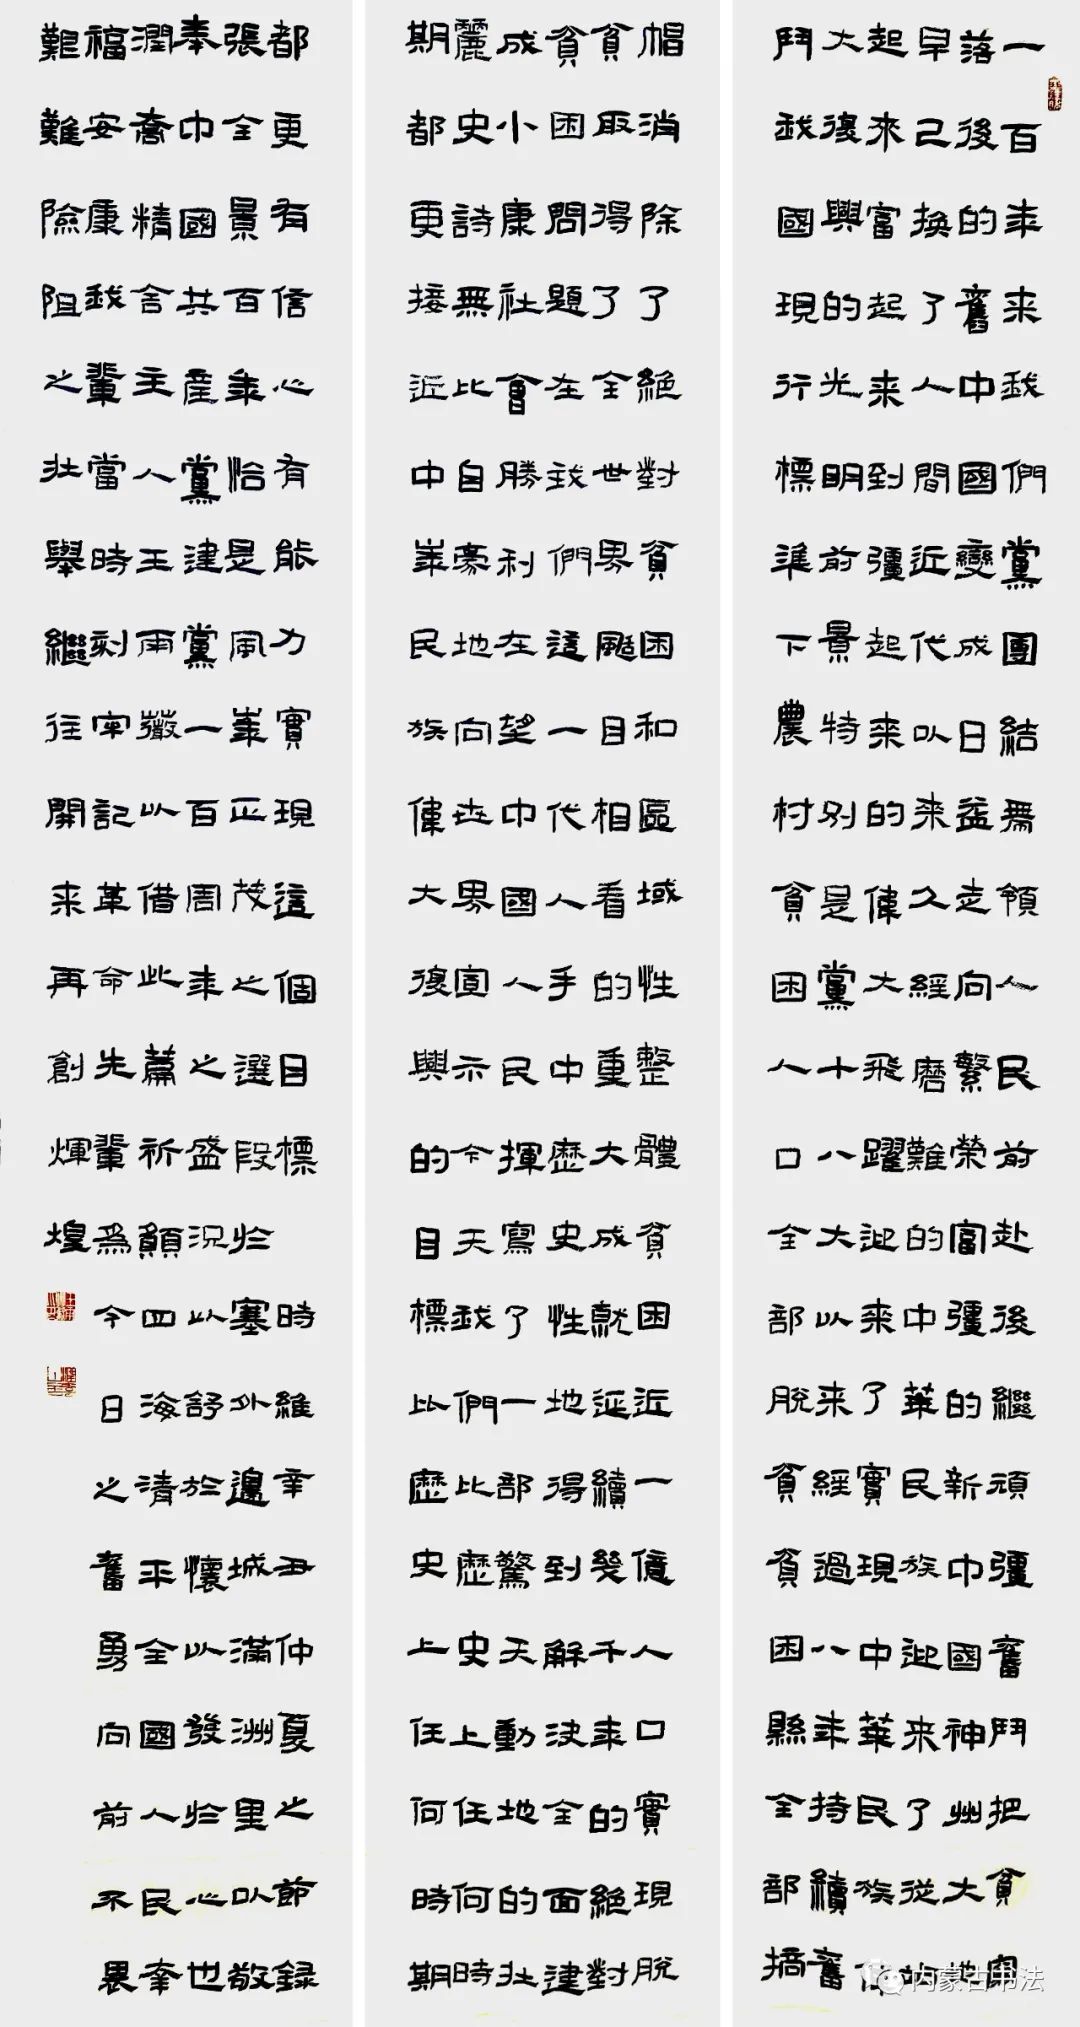 一百年来我們黨團結帶領人民前赴後繼頑彊奮鬥把貧窮
落後的舊中國變成日益走向繁榮富彊的新中國神州大地
早已換了人間近代以来久經磨難的中華民族迎来了從站
起来富起来到彊起来的偉大飛躍迎来了實現中華民族偉
大復興的光明前景特别是黨十八大以来經過八年持續奮
鬥我國現行標準下農村貧困人口全部脱貧貧困縣全部摘
帽消除了絕對貧困和區域性整體貧困近一億人口實現脱
貧取得了全世界颳目相看的重大成就延續幾千年的絕對
貧困問題在我們這一代人手中歷史性地得到解決全面建
成小康社會勝利在望中國人民揮寫了一部驚天動地的壯
麗史詩無比自豪地向世界宣示今天我們比歷史上任何時
期都更接近中華民族偉大復興的目標比歷史上任何時期
都更有信心有能力實現這個目標 時維辛丑仲夏之節録
張全景百年恰是風華正茂之選段於塞外邊城滿洲里以敬
奉中國共產黨建黨一百周年之盛況以舒於懷以發於心也
潤喬精舍主人王雨薇以借此篇祈願四海清平全國人民幸
福安康我輩當時刻牢記革命先輩為今日之奮勇向前不畏
艱難險阻之壯舉繼往開来再創輝煌
内蒙古书法